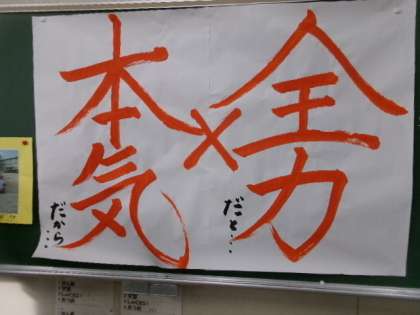 全力
だと…
×
本気
だから…